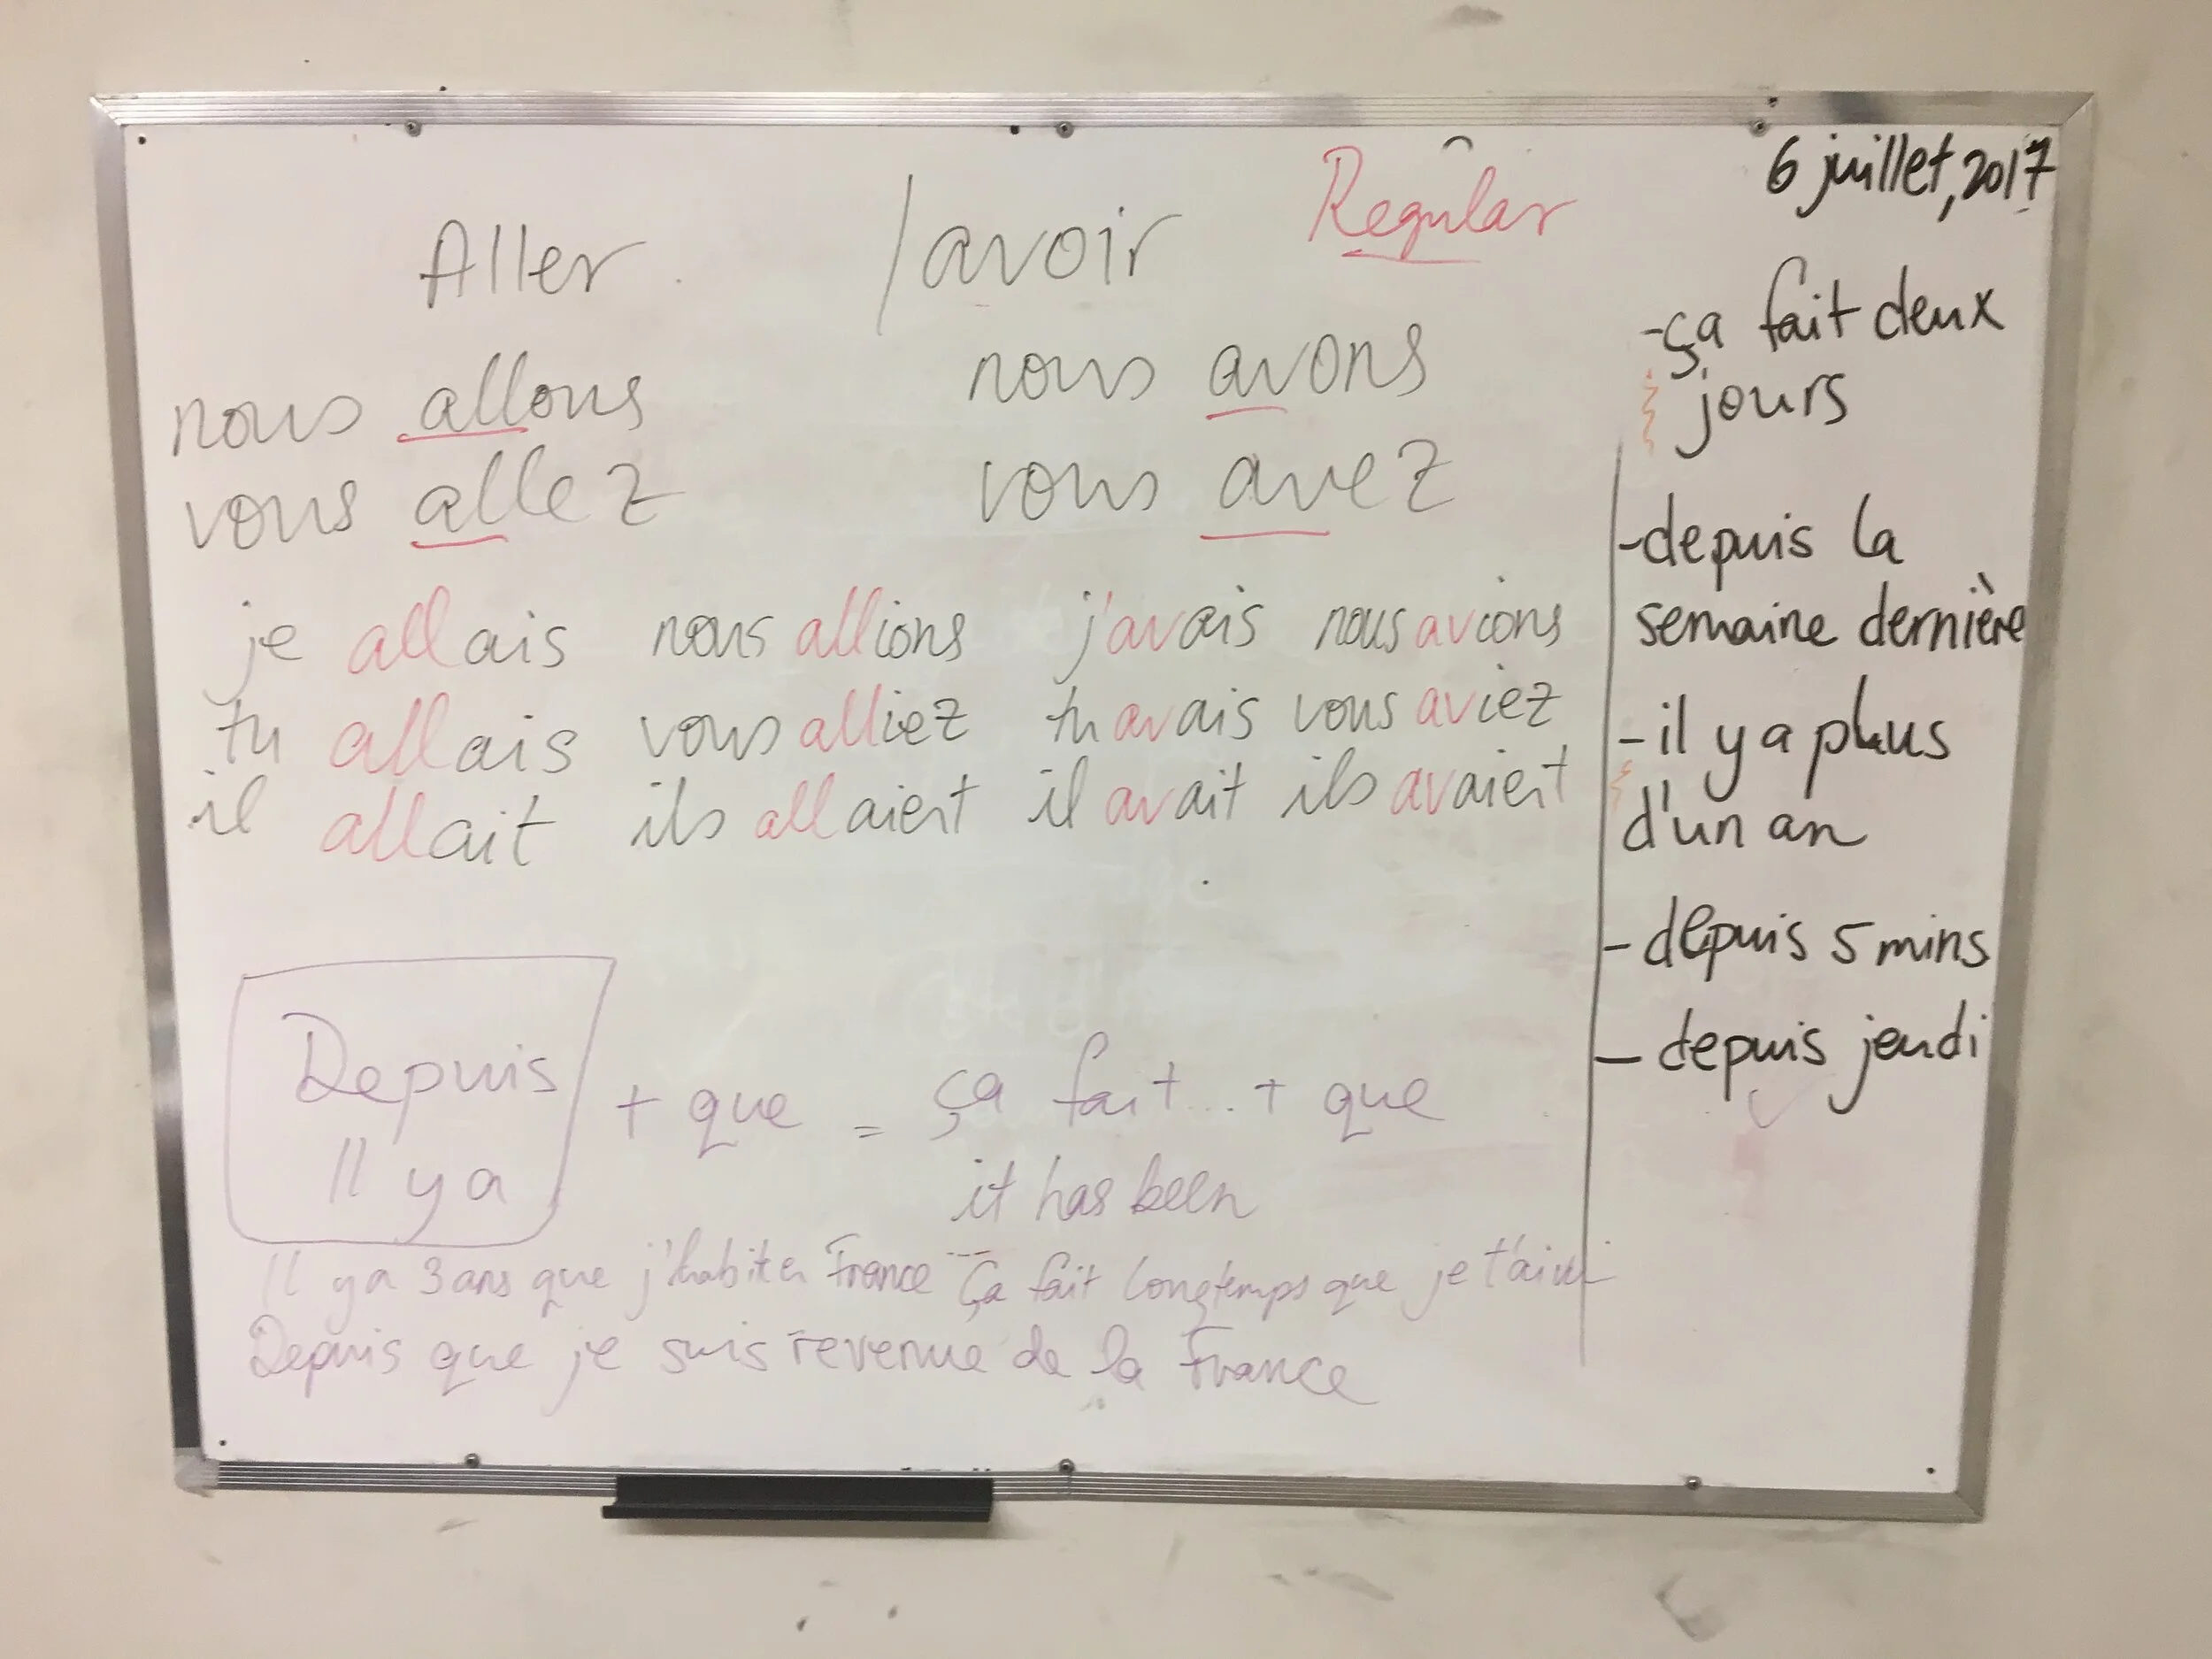 6 juillet, 2017
Aller / avoir Regular
nous allons nous avons
vous allez vous avez
je allais nous allions j'avais nous avions
tu allais vous alliez tu avais vous aviez
il allait ils allaient il avait ils avaient
Depuis
Il y a
+ que = ça fait... + que
it has been
Il y a 3 ans que j'habite en France --- Ça fait longtemps que je
Depuis que je suis revenue de la France
-ça fait deux
jours
-depuis la
semaine dernière
-il y a plus
d'un an
-depuis 5 mins
-depuis jeudi